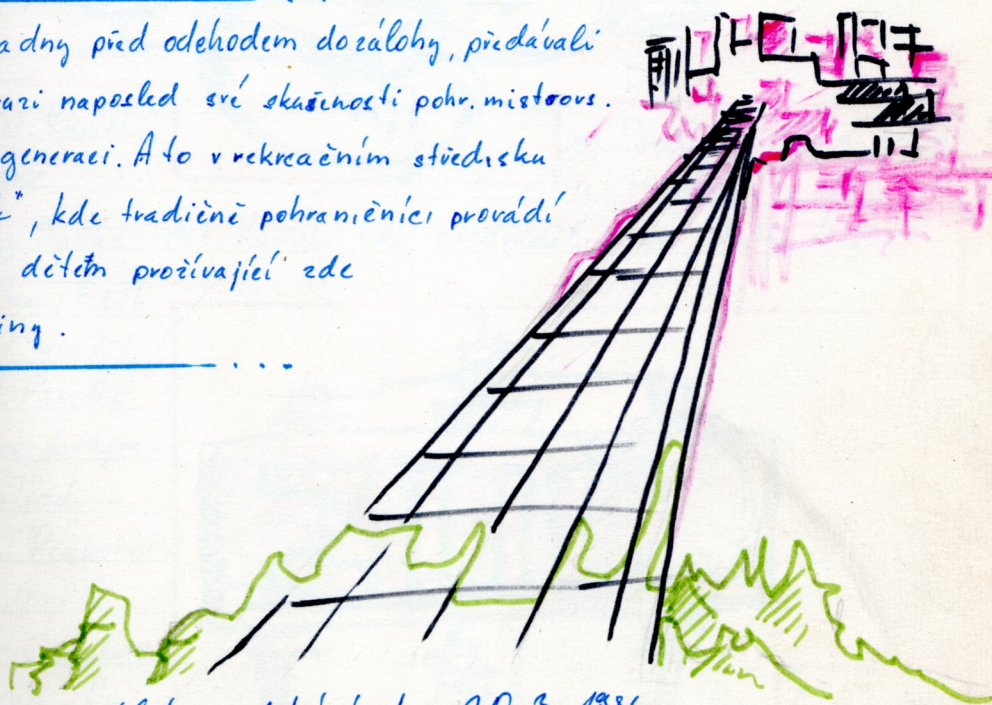 a dny před odchodem do zálohy, předávali
naposled své zkušenosti pohr. mistrovs.
generaci. A to v rekreačním středisku
", kde tradičně pohraničníci provádí
dětem prožívající zde
.
...